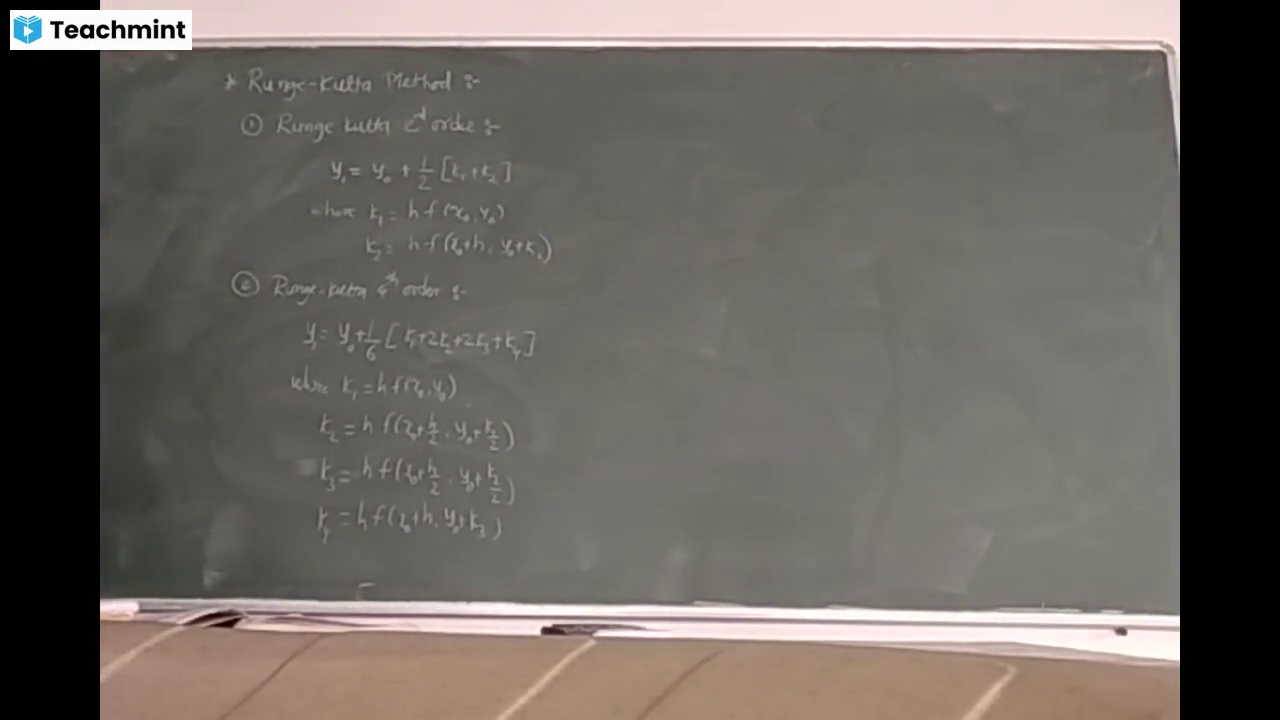 Teachmint
* Runge-Kutta Method :-
① Runge kutta 2nd order :-
y₁ = y₀ + 1/2 [k₁+k₂]
where k₁ = h f(x₀, y₀)
k₂ = h f(x₀+h, y₀+k₁)
② Runge-kutta 4th order :-
y₁ = y₀ + 1/6 [k₁+2k₂+2k₃+k₄]
where k₁ = h f(x₀, y₀)
k₂ = h f(x₀+h/2, y₀+k₁/2)
k₃ = h f(x₀+h/2, y₀+k₂/2)
k₄ = h f(x₀+h, y₀+k₃)